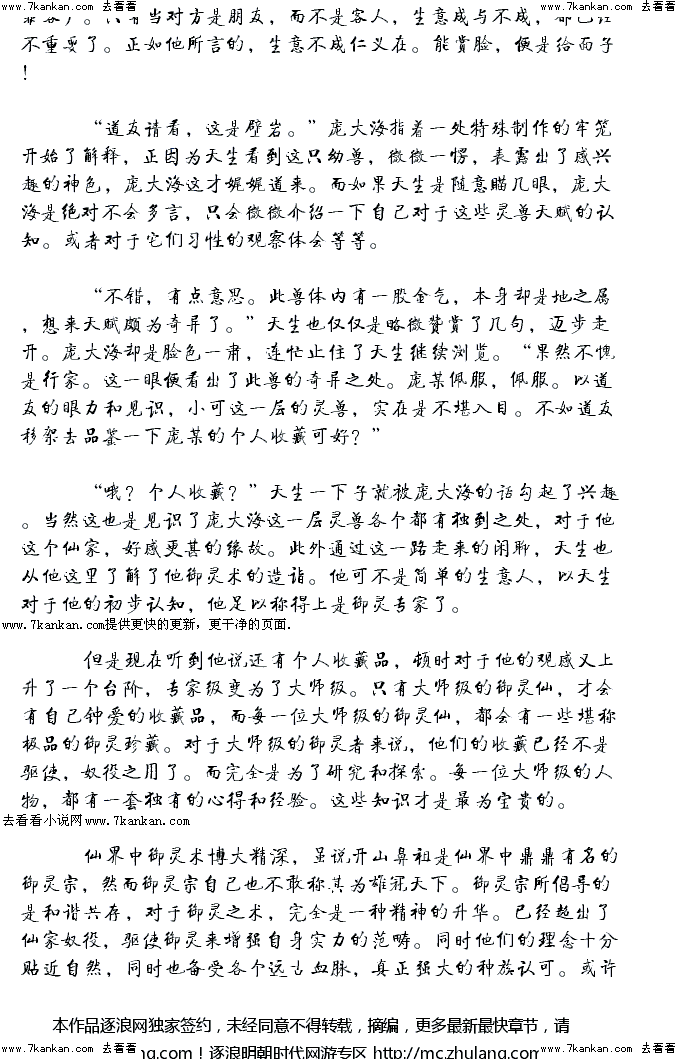 www.7kankan.com 去看看 www.7kankan.com 去看看
靠客户。只有当对方是朋友，而不是客人，生意成与不成，都已经
不重要了。正如他所言的，生意不成仁义在。能赏脸，便是给面子
！
“道友请看，这是壁岩。”庞大海指着一处特殊制作的牢笼
开始了解释，正因为天生看到这只幼兽，微微一愣，表露出了感兴
趣的神色，庞大海这才娓娓道来。而如果天生是随意瞄几眼，庞大
海是绝对不会多言，只会微微介绍一下自己对于这些灵兽天赋的认
知。或者对于它们习性的观察体会等等。
“不错，有点意思。此兽体内有一股金气，本身却是地之属
，想来天赋颇为奇异了。”天生也仅仅是略微赞赏了几句，迈步走
开。庞大海却是脸色一肃，连忙止住了天生继续浏览。“果然不愧
是行家。这一眼便看出了此兽的奇异之处。庞某佩服，佩服。以道
友的眼力和见识，小可这一层的灵兽，实在是不堪入目。不如道友
移架去品鉴一下庞某的个人收藏可好？”
“哦？个人收藏？”天生一下子就被庞大海的话勾起了兴趣
。当然这也是见识了庞大海这一层灵兽各个都有独到之处，对于他
这个仙家，好感更甚的缘故。此外通过这一路走来的闲聊，天生也
从他这里了解了他御灵术的造诣。他可不是简单的生意人，以天生
对于他的初步认知，他足以称得上是御灵专家了。
www.7kankan.com提供更快的更新，更干净的页面.
但是现在听到他说还有个人收藏品，顿时对于他的观感又上
升了一个台阶，专家级变为了大师级。只有大师级的御灵仙，才会
有自己钟爱的收藏品，而每一位大师级的御灵仙，都会有一些堪称
极品的御灵珍藏。对于大师级的御灵者来说，他们的收藏已经不是
驱使，奴役之用了。而完全是为了研究和探索。每一位大师级的人
物，都有一套独有的心得和经验。这些知识才是最为宝贵的。
去看看小说网www.7kankan.com
仙界中御灵术博大精深，虽说开山鼻祖是仙界中鼎鼎有名的
御灵宗，然而御灵宗自己也不敢称其为雄冠天下。御灵宗所倡导的
是和谐共存，对于御灵之术，完全是一种精神的升华。已经超出了
仙家奴役，驱使御灵来增强自身实力的范畴。同时他们的理念十分
贴近自然，同时也备受各个远古血脉，真正强大的种族认可。或许
本作品逐浪网独家签约，未经同意不得转载，摘编，更多最新最快章节，请
www.7kankan.com 去看看 ng.com！逐浪明朝时代网游专区 http://mc.zhulang.com/ www.7kankan.com 去看看